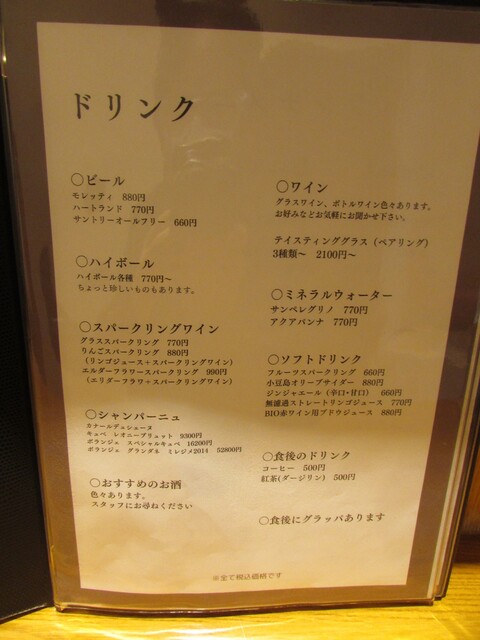 ドリンク
○ビール
モレッティ 880円
ハートランド 770円
サントリーオールフリー 660円
○ハイボール
ハイボール各種 770円〜
ちょっと珍しいものもあります。
○スパークリングワイン
グラススパークリング 770円
りんごスパークリング 880円
(リンゴジュース+スパークリングワイン)
エルダーフラワースパークリング 990円
(エリダーフラワ+スパークリングワイン)
○シャンパーニュ
カナールデュシェーヌ
キュベ レオニーブリュット 9300円
ボランジェ スペシャルキュベ 16200円
ボランジェ グランダネ ミレジメ2014 52800円
○おすすめのお酒
色々あります。
スタッフにお尋ねください
○ワイン
グラスワイン、ボトルワイン色々あります。
お好みなどお気軽にお聞かせ下さい。
テイスティンググラス(ペアリング)
3種類〜 2100円〜
○ミネラルウォーター
サンペレグリノ 770円
アクアパンナ 770円
○ソフトドリンク
フルーツスパークリング 660円
小豆島オリーブサイダー 880円
ジンジャエール(辛口・甘口) 660円
無濾過ストレートリンゴジュース 770円
BIO赤ワイン用ブドウジュース 880円
○食後のドリンク
コーヒー 500円
紅茶(ダージリン) 500円
○食後にグラッパあります
※全て税込価格です